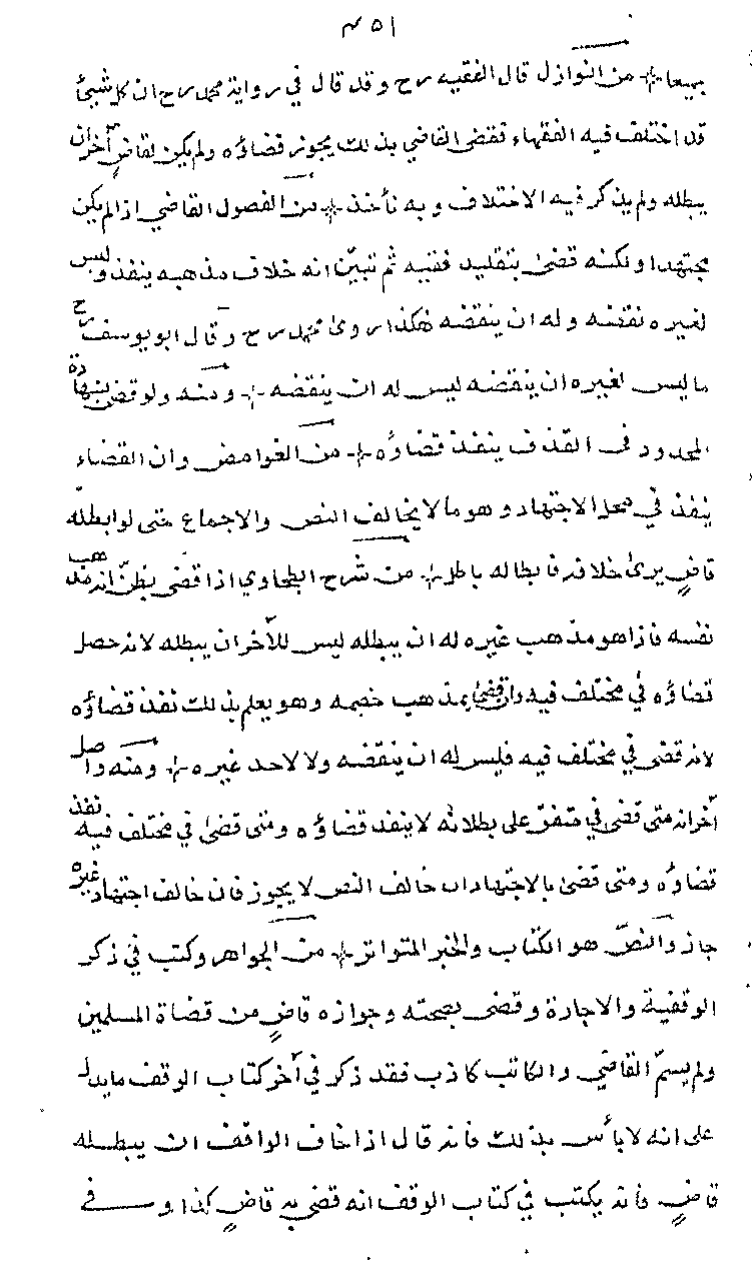 ٤٥١
جميعا من النوازل قال الفقيه رح وقد قال في رواية محمد رح ان كل شيئ
قد اختلف فيه الفقهاء فقضى القاضي بذلك يجوز قضاؤه ولم يكن لقاضٍ آخر ان
يبطله ولم يذكر فيه الاختلاف وبه نأخذ من الفصول القاضي اذا لم يكن
مجتهدا ولكنه قضىٰ بتقليد فقيه ثم تبيّن انه خلاف مذهبه ينفذ وليس
لغيره نقضه وله ان ينقضه هكذا روىٰ محمد رح وقال ابو يوسف رح
ما ليس لغيره ان ينقضه ليس له ان ينقضه ومنه ولو قضى بشهادة
المحدود في القذف ينفذ قضاؤه من الغوامض وان القضاء
ينفذ في محل الاجتهاد وهو ما لا يخالف النص والاجماع حتى لو ابطله
قاضٍ يرىٰ خلافه فابطاله باطل من شرح الطحاوي اذا قضى بظنّ انه مذهب
نفسه فاذا هو مذهب غيره له ان يبطله ليس للآخر ان يبطله لانه حصل
قضاؤه في مختلف فيه وان قضىٰ بمذهب خصمه وهو يعلم بذلك نفذ قضاؤه
لانه قضى في مختلف فيه فليس له ان ينقضه ولا لاحد غيره ومنه واصل
آخر انه متى قضى في متفق على بطلانه لا ينفذ قضاؤه ومتى قضىٰ في مختلف فيه نفذ
قضاؤه ومتى قضىٰ بالاجتهاد ان خالف النص لا يجوز فان خالف اجتهاد غيره
جاز والنصّ هو الكتاب والخبر المتواتر من الجواهر وكتب في ذكر
الوقفية والاجارة وقضى بصحته وجوازه قاضٍ من قضاة المسلمين
ولم يسمّ القاضي والكاتب كاذب فقد ذكر في آخر كتاب الوقف ما يدل
على انه لا بأس بذلك فانه قال اذا خاف الواقف ان يبطله
قاضٍ فانه يكتب في كتاب الوقف انه قضى به قاضٍ كذا وفي